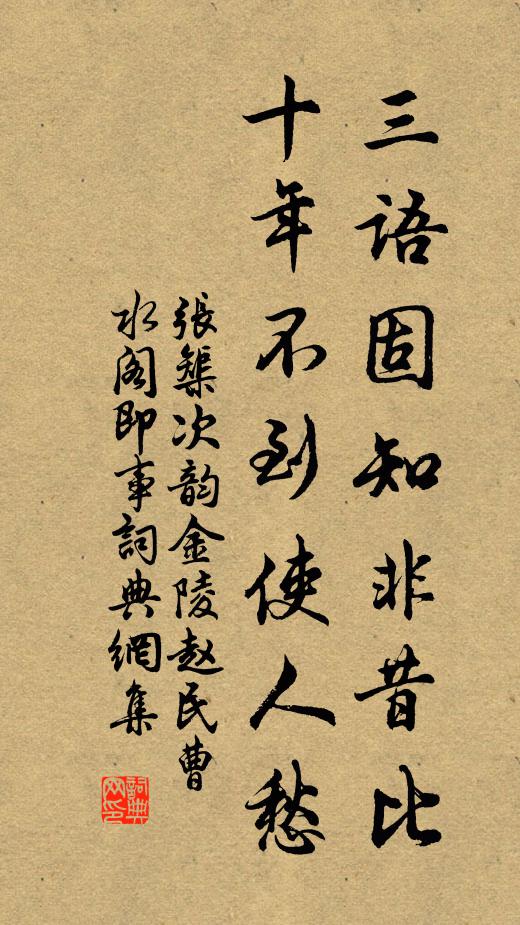 三語固知非昔比
十年不到使人愁
張榘次韵金陵赵民曹
水阁即事詞典網集
詞典网印